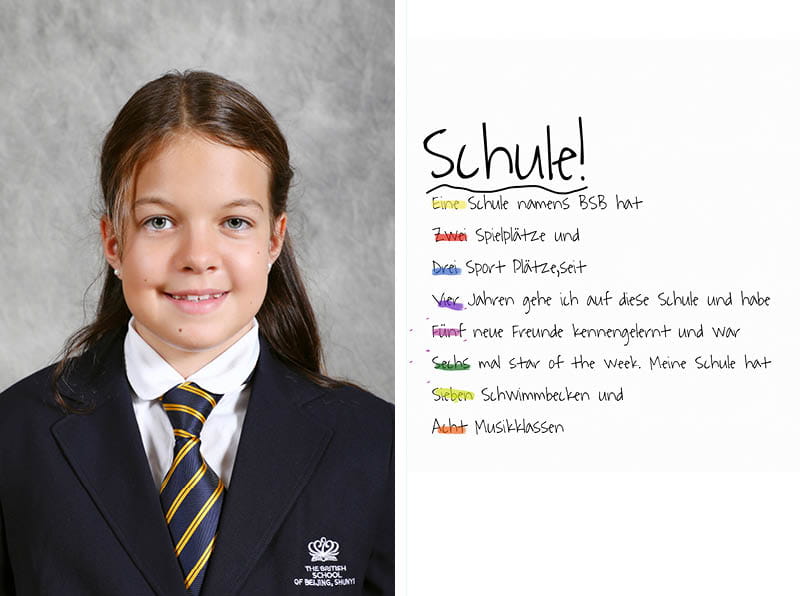 THE BRITISH
SCHOOL
OF BEIJING, SHUNYI
Schule!
Eine Schule namens BSB hat
Zwei Spielplätze und
Drei Sport Plätze,seit
Vier Jahren gehe ich auf diese Schule und habe
Fünf neue Freunde kennengelernt und war
Sechs mal star of the week. Meine Schule hat
Sieben Schwimmbecken und
Acht Musikklassen